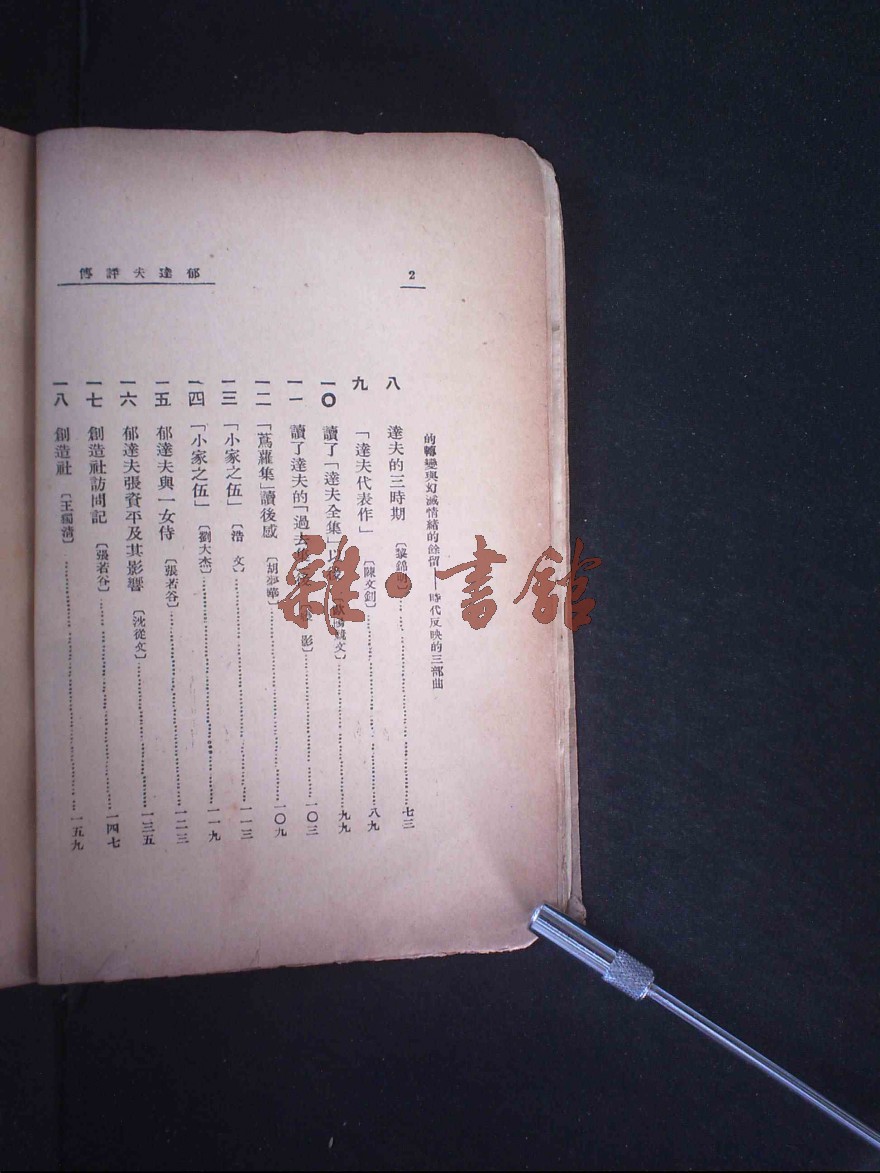 2
郁達夫評傳
的轉變與幻滅情緒的餘留——時代反映的三部曲
八 達夫的三時期 〔黎錦明〕 七三
九 「達夫代表作」 〔陳文釗〕 八九
一〇 讀了「達夫全集」以後 九九
一一 讀了達夫的「過去集」 一〇三
一二 「蔦蘿集」讀後感 〔胡夢華〕 一〇九
一三 「小家之伍」 〔浩文〕 一一三
一四 「小家之伍」 〔劉大杰〕 一一九
一五 郁達夫與一女侍 〔張若谷〕 一二三
一六 郁達夫張資平及其影響 〔沈從文〕 一三五
一七 創造社訪問記 〔張若谷〕 一四七
一八 創造社 〔王獨清〕 一五九
雜·書館